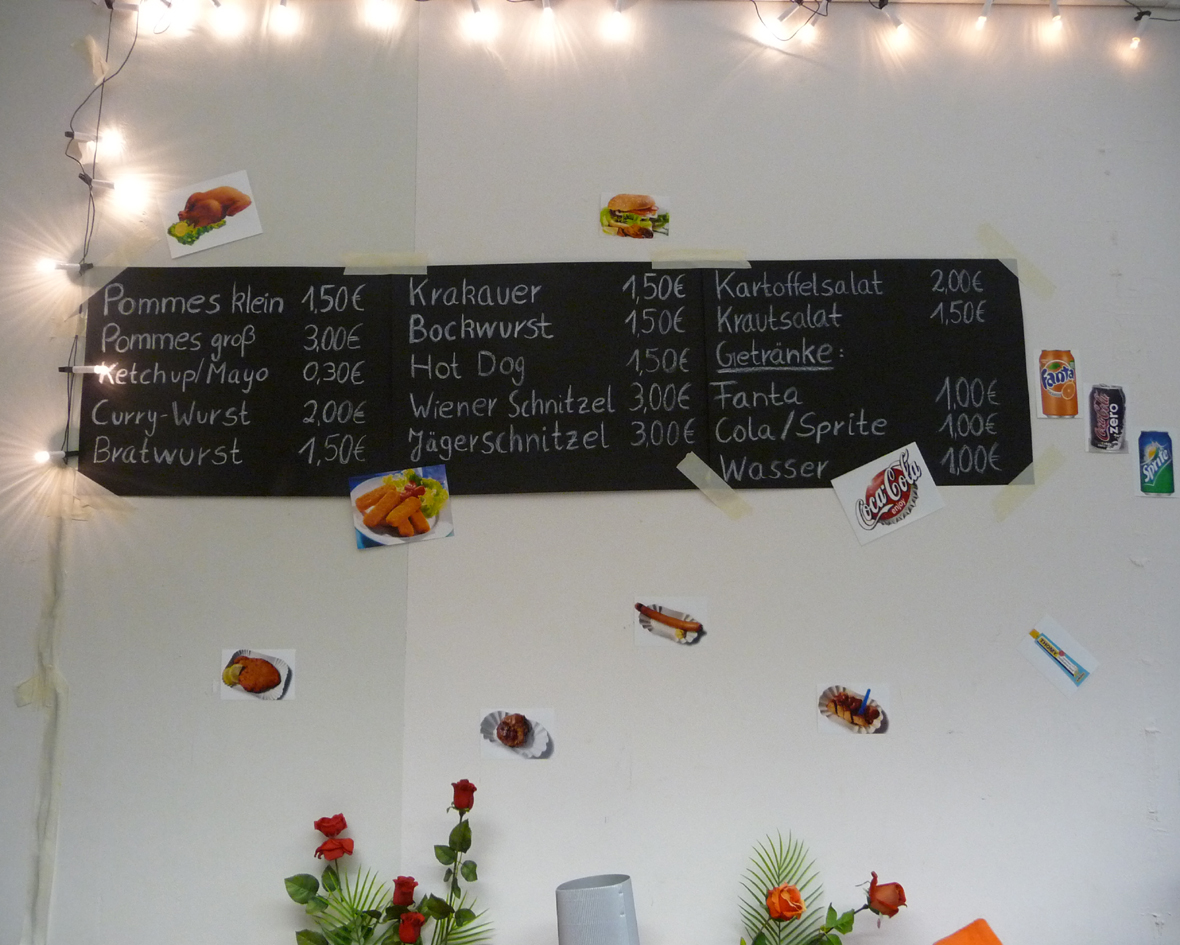 Pommes klein 1,50€
Pommes groß 3,00€
Ketchup/Mayo 0,30€
Curry-Wurst 2,00€
Bratwurst 1,50€
Krakauer 1,50€
Bockwurst 1,50€
Hot Dog 1,50€
Wiener Schnitzel 3,00€
Jägerschnitzel 3,00€
Kartoffelsalat 2,00€
Krautsalat 1,50€
Getränke:
Fanta 1,00€
Cola/Sprite 1,00€
Wasser 1,00€
Fanta
Coca-Cola zero
Sprite
Coca-Cola
enjoy